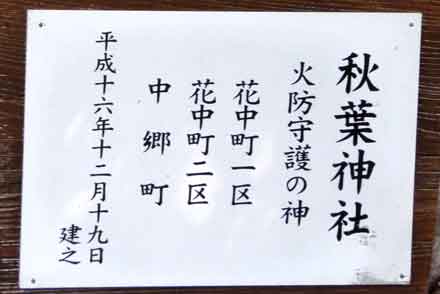 秋葉神社
火防守護の神
花中町一区
花中町二区
中郷町
平成十六年十二月十九日
建之